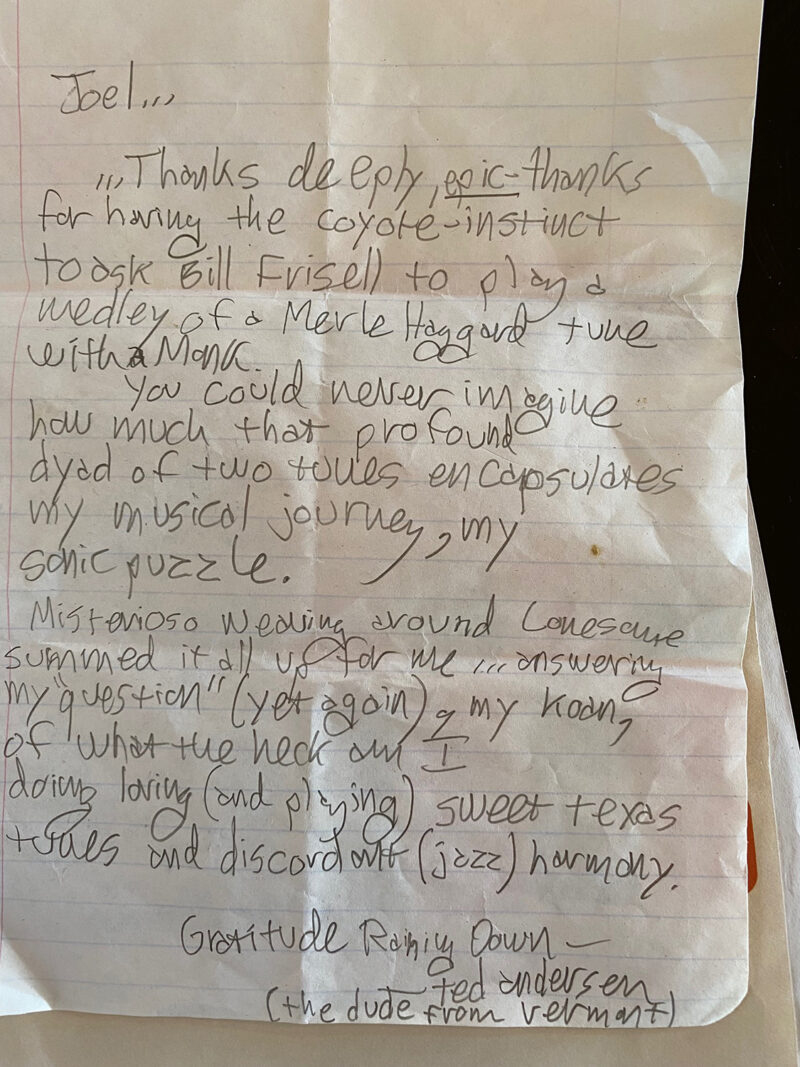 Joel...
...Thanks deeply, epic-thanks
for having the coyote-instinct
to ask Bill Frisell to play a
medley of a Merle Haggard tune
with a Monk.
You could never imagine
how much that profound
dyad of two tunes encapsulates
my musical journey, my
sonic puzzle.
Misterioso weaving around Lonesome
summed it all up for me ... answering
my "question" (yet again), my koan,
of what the heck am I
doing loving (and playing) sweet texas
tunes and discordant (jazz) harmony.
Gratitude Raining Down —
ted andersen
(the dude from vermont)